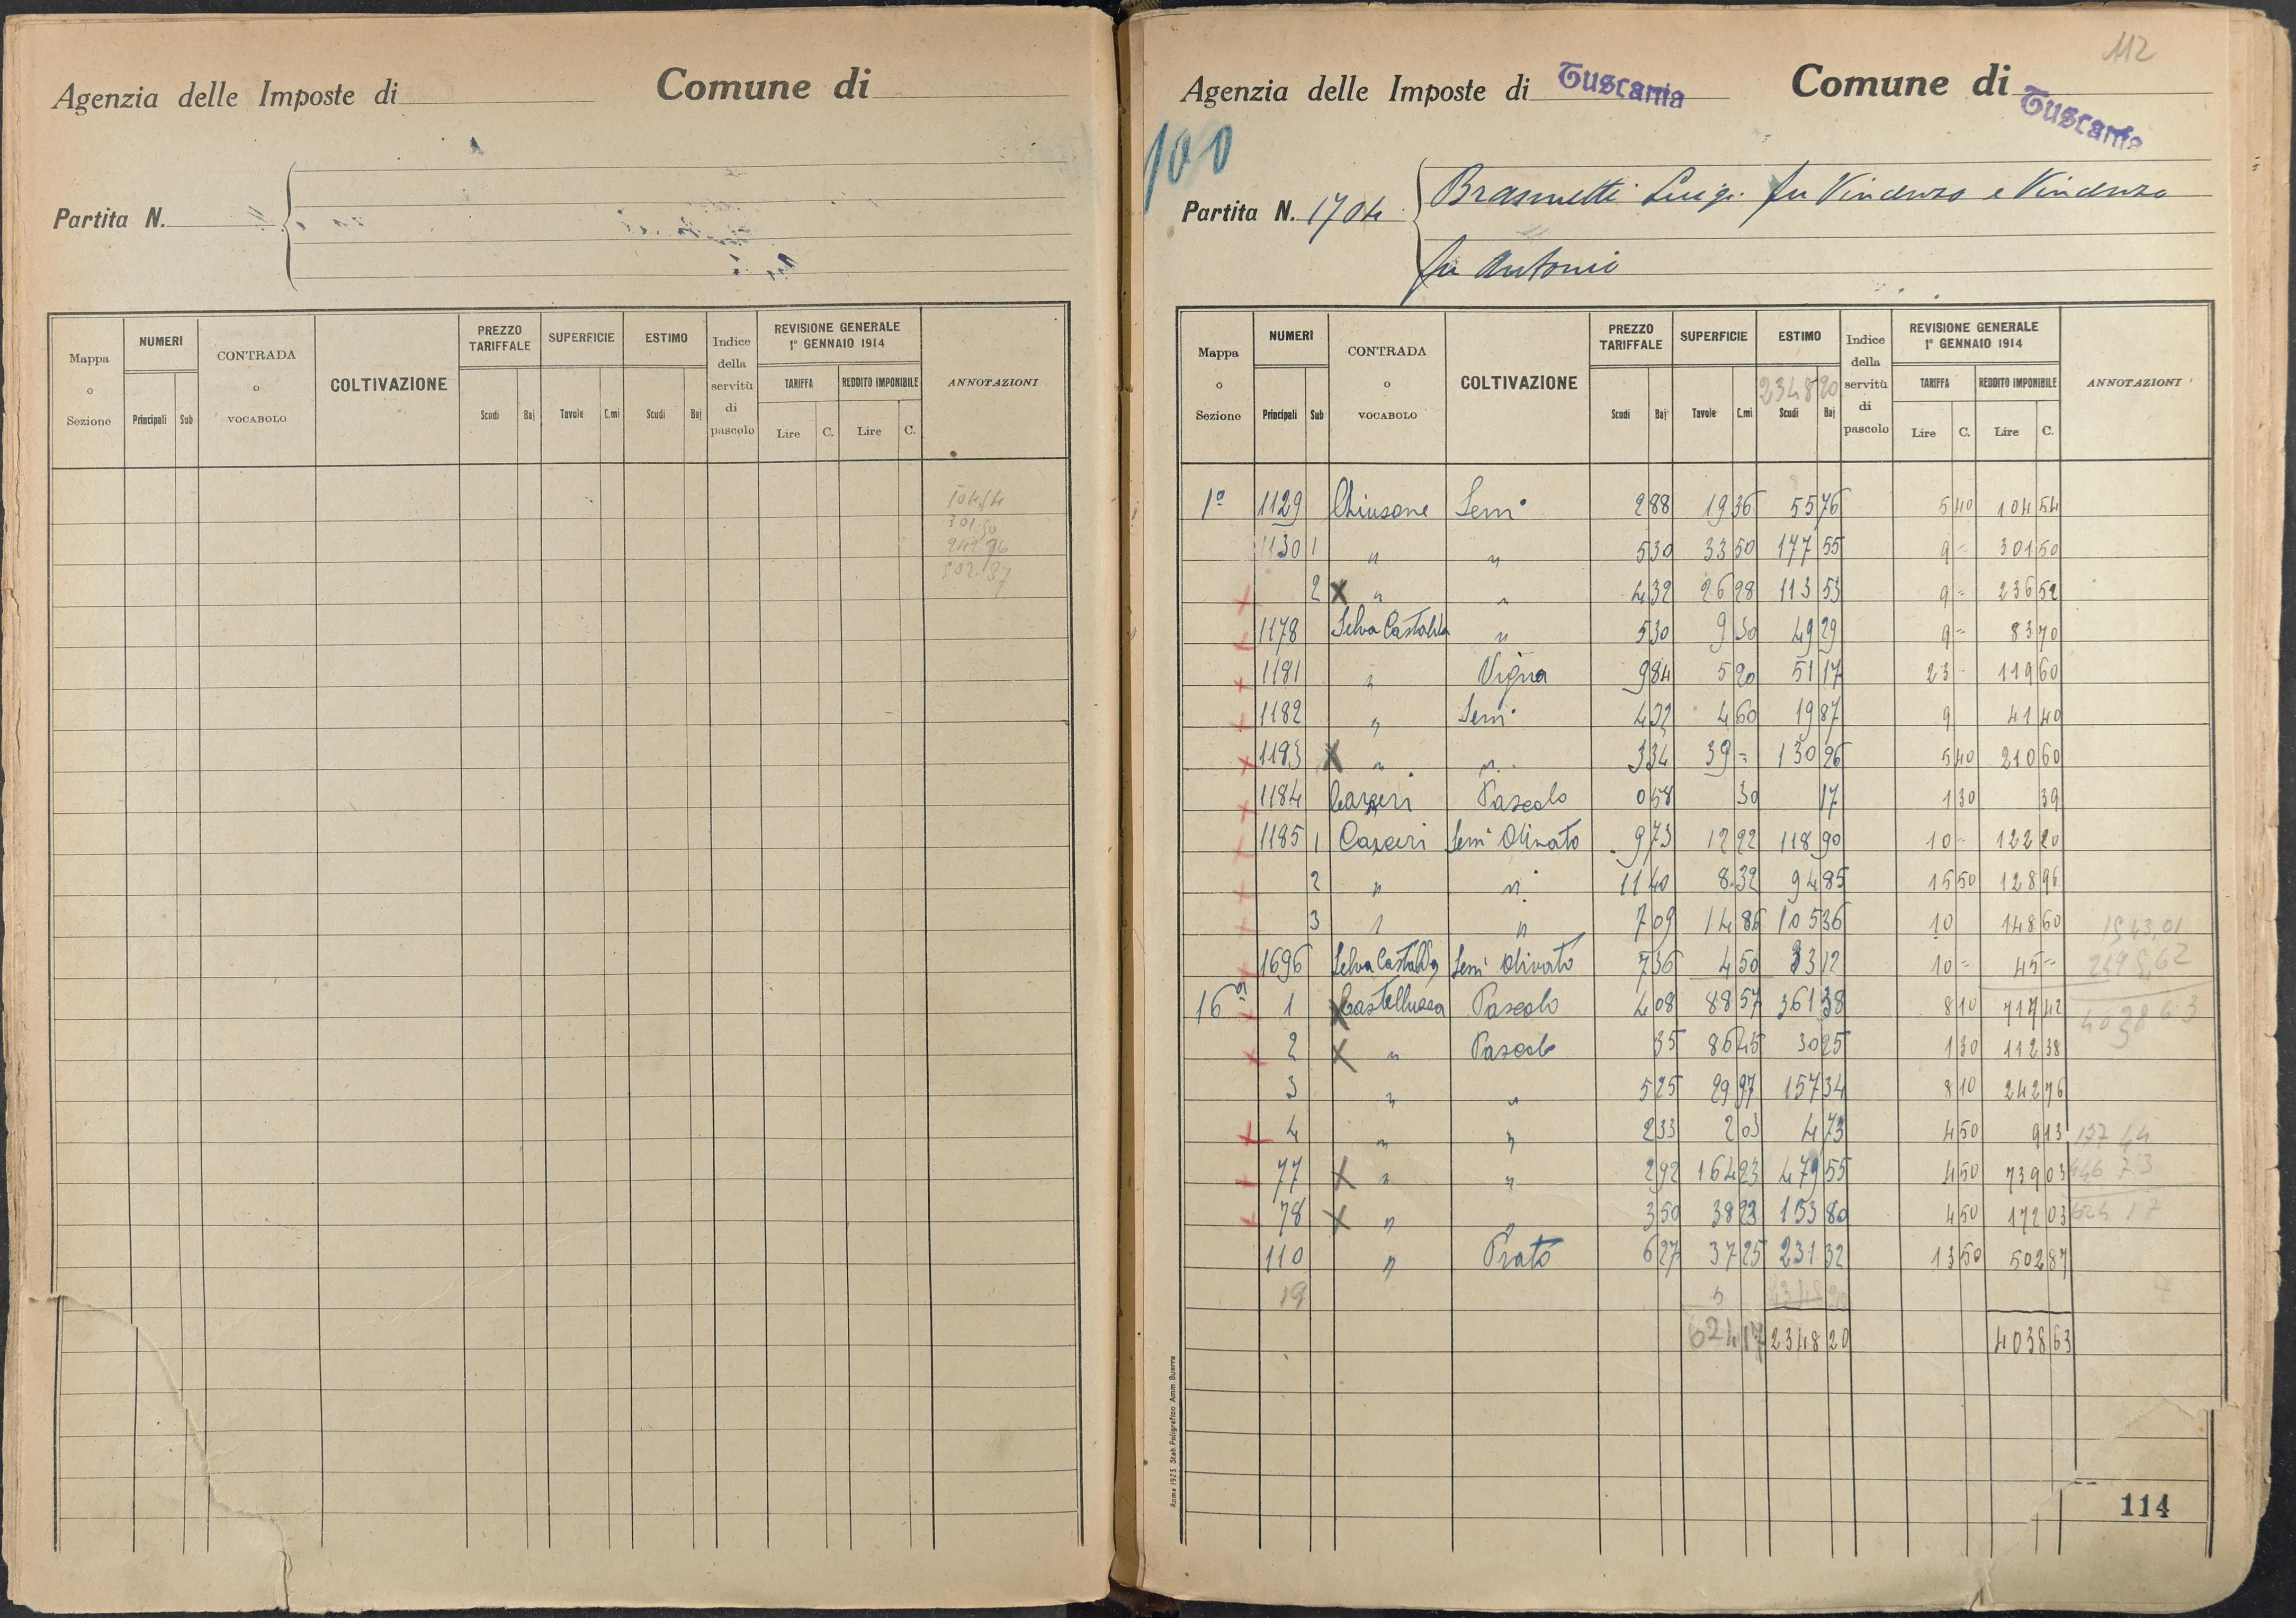 Agenzia delle Imposte di Comune di
Partita N.
Mappa o Sezione NUMERI Principali Sub CONTRADA o VOCABOLO COLTIVAZIONE PREZZO TARIFFALE Scudi Baj SUPERFICIE Tavole C.mi ESTIMO Scudi Baj Indice della servitù di pascolo REVISIONE GENERALE 1° GENNAIO 1914 TARIFFA Lire C. REDDITO IMPONIBILE Lire C. ANNOTAZIONI
104,54
301.50
242.76
502.87
112
Agenzia delle Imposte di Tuscania Comune di Tuscania
100
Partita N. 1704 Luigi fu Vincenzo e Vincenzo
fu Antonio
Mappa o Sezione NUMERI Principali Sub CONTRADA o VOCABOLO COLTIVAZIONE PREZZO TARIFFALE Scudi Baj SUPERFICIE Tavole C.mi ESTIMO 2348 20 Scudi Baj Indice della servitù di pascolo REVISIONE GENERALE 1° GENNAIO 1914 TARIFFA Lire C. REDDITO IMPONIBILE Lire C. ANNOTAZIONI
1ª 1129 Chiusone Semi° 2 88 19 36 55 76 5 40 104 54
1130 1 " " 5 30 33 50 177 55 9 = 301 50
2 X " " 4 32 26 28 113 53 9 = 236 52
1178 Selva Castalda " 5 30 9 30 49 29 9 = 83 70
1181 " Vigna 9 84 5 20 51 17 23 - 119 60
1182 " Semi° 4 32 4 60 19 87 9 41 40
1183 X " " 3 34 39 = 130 26 5 40 210 60
1184 Carceri Pascolo 0 58 30 17 1 30 39
1185 1 Carceri Semi° Olivato 9 73 12 22 118 90 10 - 122 20
2 " " 11 40 8 32 94 85 15 50 128 96
3 " " 7 09 14 86 105 36 10 148 60 1543,01
1696 Selva Castalda Semi° Olivato 7 36 4 50 33 12 10 = 45 - 2495,62
16ª 1 X Castelluzza Pascolo 4 08 88 57 361 38 8 10 717 42 4038 63
2 X " Pascolo 35 86 45 30 25 1 30 112 38
3 " " 5 25 29 97 157 34 8 10 242 76
4 " " 2 33 2 03 4 73 4 50 9 13 137 44
77 X " " 2 92 164 23 479 55 4 50 739 03 73
78 X " " 3 50 38 23 133 80 4 50 172 03 624 17
110 " Prato 6 27 37 25 231 32 13 50 502 87
19 2348 20
624 17 2348 20 4038 63
Roma 1923 Stab. Poligrafico Amm. Guerra
114